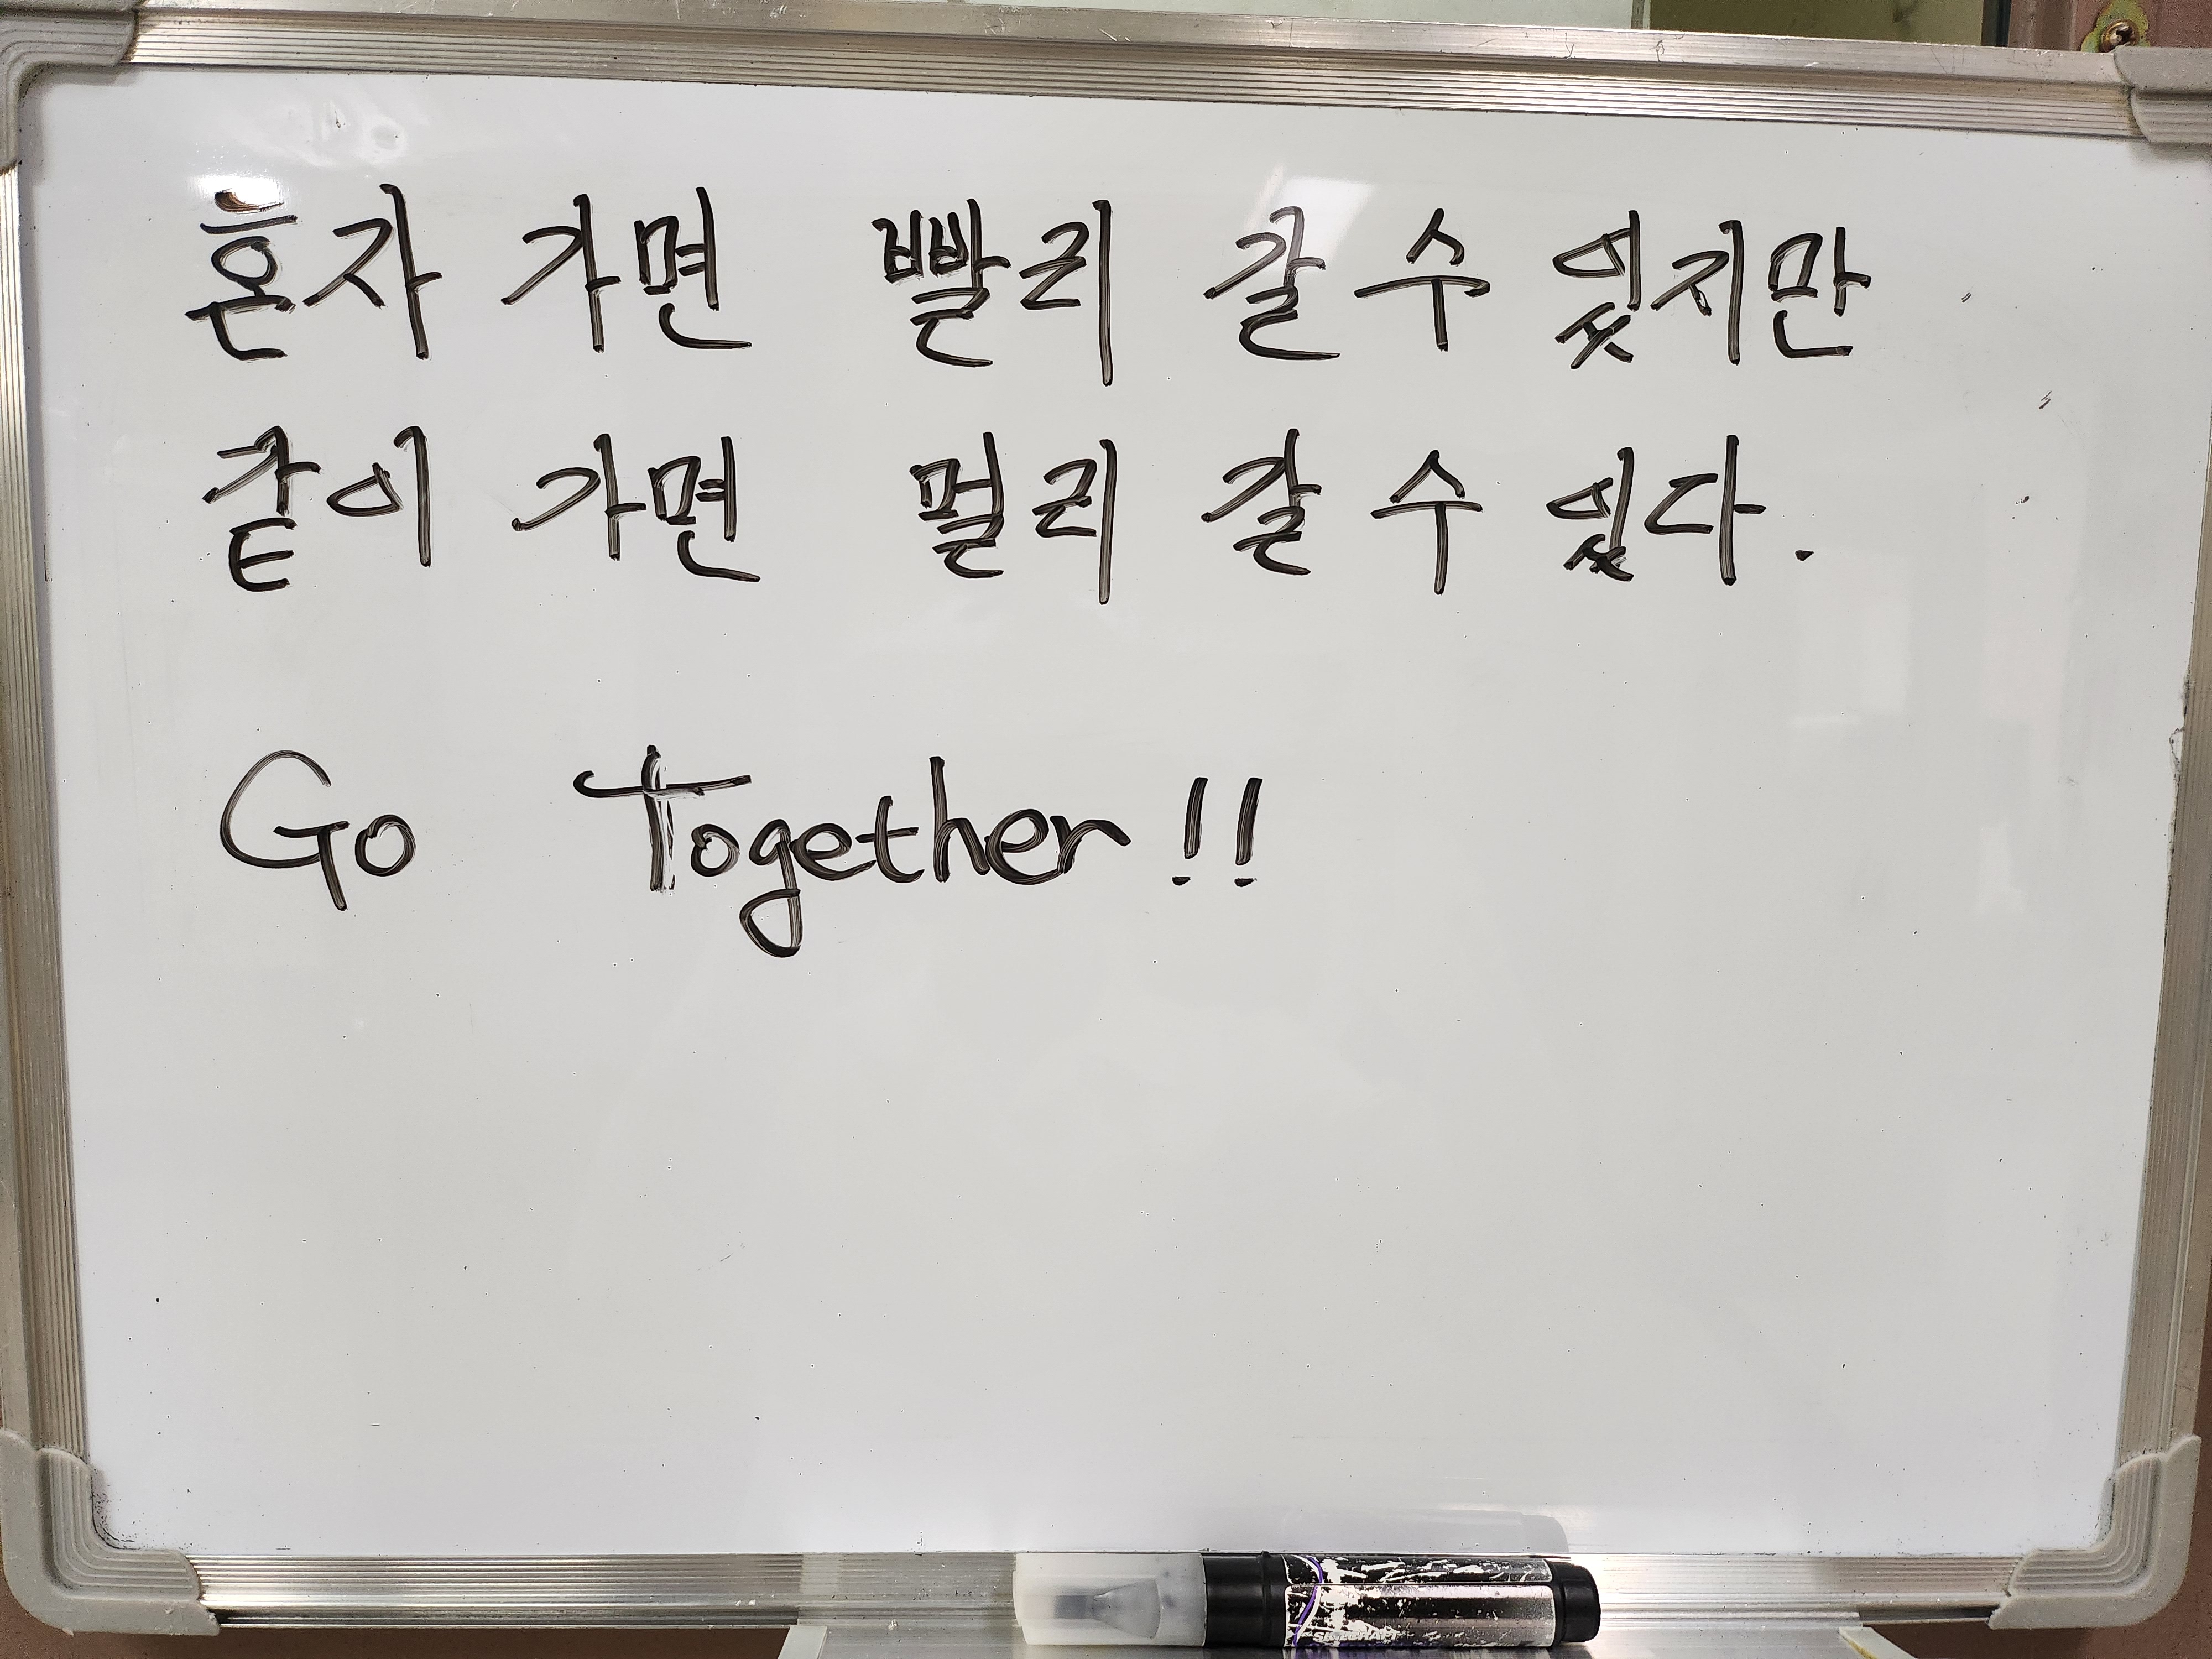 혼자 가면 빨리 갈 수 있지만
같이 가면 멀리 갈 수 있다.
Go Together!!
SKILCRAFT